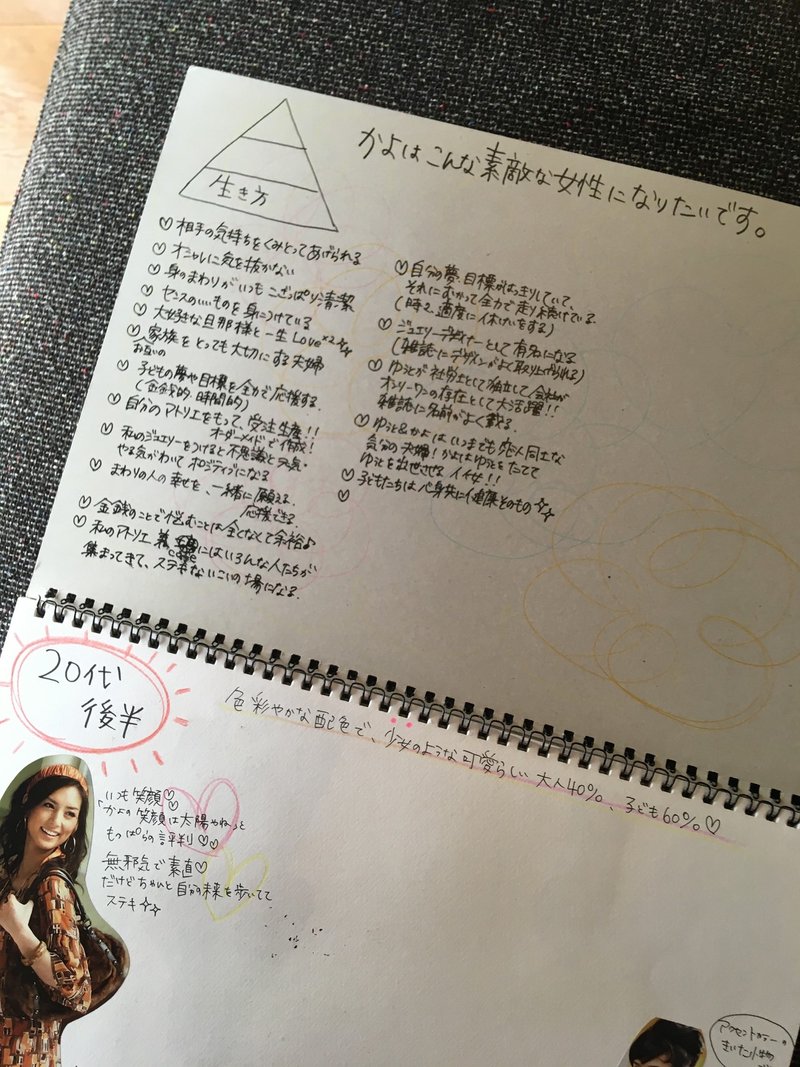 かよはこんな素敵な女性になりたいです。
生き方
♡ 相手の気持ちをくみとってあげられる
♡ オシャレに気を抜かない
♡ 身のまわりがいつもこざっぱり清潔
♡ センスのいいものを身につけている
♡ 大好きな旦那様と一生Love×2
♡ 家族をとっても大切にする夫婦
お互いの
♡ 子どもの夢や目標を全力で応援する。
(金銭的・時間的)
♡ 自分のアトリエをもって、受注生産!!
オーダーメイドで作成!
♡ 私のジュエリーをつけると不思議と元気・
やる気がわいてポジティブになる
♡ まわりの人の幸せを、一緒に願える。
応援できる。
♡ 金銭のことで悩むことは全くなくて余裕♪
♡ 私のアトリエ兼cafeにはいろんな人たちが
集まってきて、ステキないこいの場になる。
♡ 自分の夢・目標がはっきりしていて、
それにむかって全力で走り続けている。
(時々適度に休けいをする)
♡ ジュエリーデザイナーとして有名になる
(雑誌にデザインがよく取り上げられる)
♡ ゆうとが社労士として独立して会社が
オンリーワンの存在として大活躍!!
雑誌に名前がよく載る。
♡ ゆうと&かよはいつまでも恋人同士な
気分の夫婦!かよはゆうとをたてて
ゆうとを出世させるイイ女!!
♡ 子どもたちは心身共に健康そのもの
♡
20代
後半
色彩やかな配色で、少女のような可愛らしい 大人40%、子ども60%♡
いつも笑顔♡
「かよの笑顔は太陽やね」と
もっぱらの評判♡♡
無邪気で素直♡
だけどちゃんと自分の未来を歩いてて
ステキ
アクセントカラーの
きいた小物